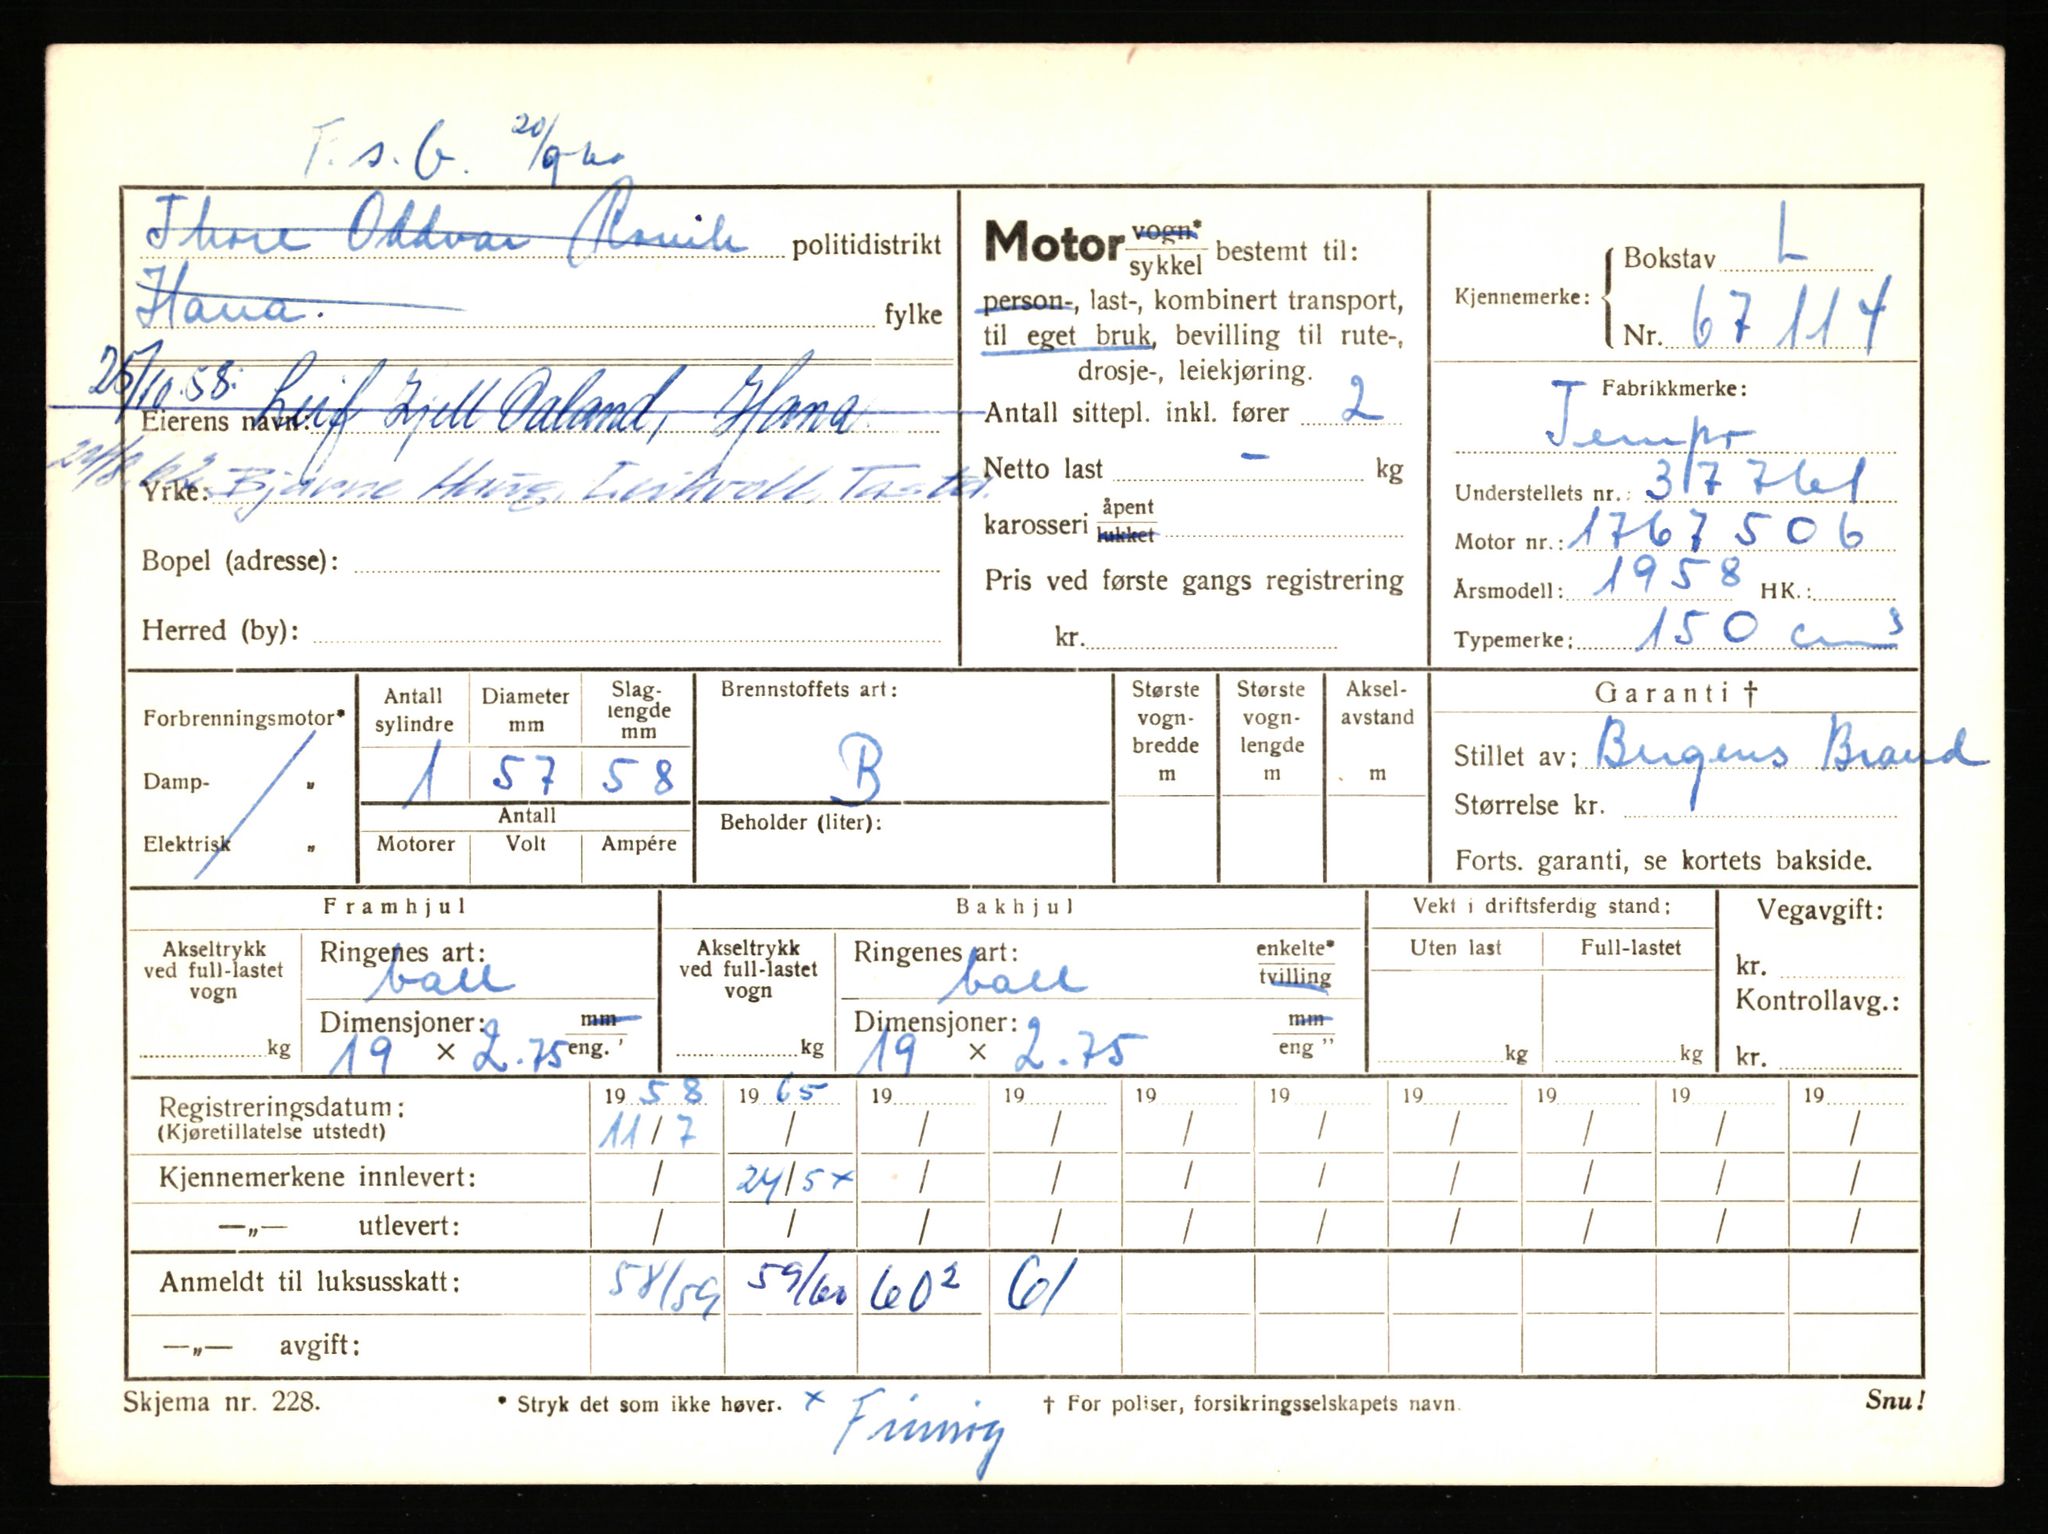 T. s. b. 20/9 60
Thore Oddvar politidistrikt
Hana. fylke
25/10.58: Leif Kjell Aaland, Hana
Eierens navn:
Yrke: Bjarne Haug, Tasta.
Bopel (adresse):
Herred (by):
Motor vogn* sykkel bestemt til:
person-, last-, kombinert transport,
til eget bruk, bevilling til rute-,
drosje-, leiekjøring.
Antall sittepl. inkl. fører 2
Netto last – kg
karosseri åpent lukket
Pris ved første gangs registrering
kr.
Kjennemerke: Bokstav L
Nr. 67114
Fabrikkmerke:
Tempo
Understellets nr.: 317761
Motor nr.: 1767506
Årsmodell: 1958 HK.:
Typemerke: 150 cm³
Forbrenningsmotor*
Damp- „
Elektrisk „
Antall sylindre Diameter mm Slag-lengde mm
1 57 58
Antall
Motorer Volt Ampére
Brennstoffets art:
B
Beholder (liter):
Største vogn-bredde m
Største vogn-lengde m
Aksel-avstand m
Garanti †
Stillet av: Bergens Brand
Størrelse kr.
Forts. garanti, se kortets bakside.
Framhjul
Akseltrykk ved full-lastet vogn kg
Ringenes art: ball
Dimensjoner: mm eng. "
19 × 2.75
Bakhjul
Akseltrykk ved full-lastet vogn kg
Ringenes art: ball enkelte* tvilling
Dimensjoner: mm eng "
19 × 2.75
Vekt i driftsferdig stand:
Uten last Full-lastet
kg kg
Vegavgift:
kr.
Kontrollavg.:
kr.
Registreringsdatum: 19 58 19 65 19 19 19 19 19 19 19 19
(Kjøretillatelse utstedt) 11/7 / / / / / / / / /
Kjennemerkene innlevert: / 24/5 × / / / / / / / /
—„— utlevert: / / / / / / / / / /
Anmeldt til luksusskatt: 58/59 59/60 60² 61
—„— avgift:
Skjema nr. 228. * Stryk det som ikke høver. × † For poliser, forsikringsselskapets navn. Snu!